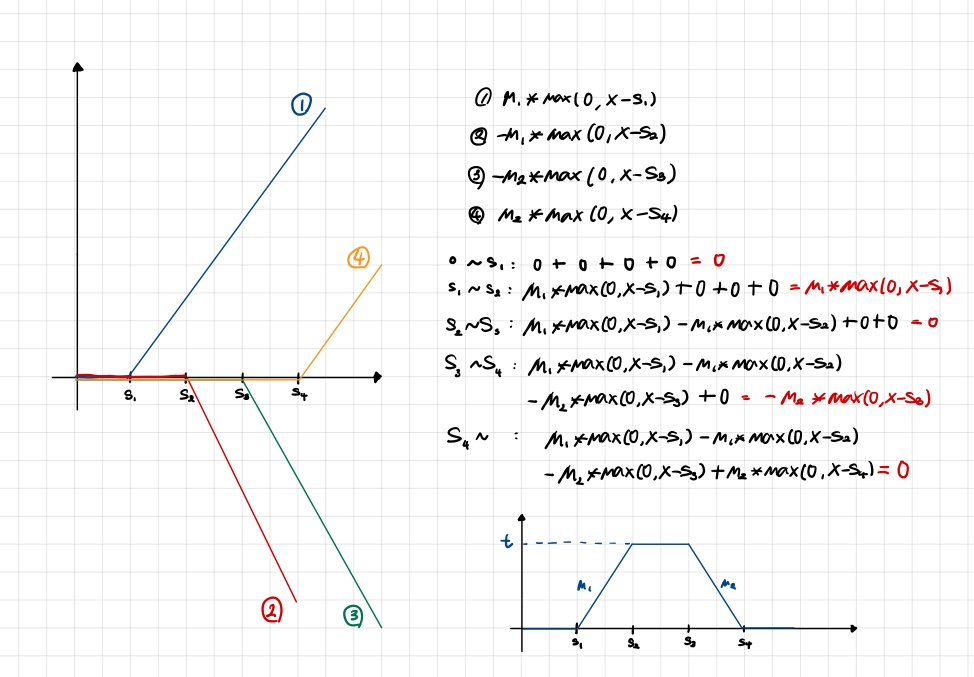 ① M₁*max(0, x-s₁)
② -M₁*max(0, x-s₂)
③ -M₂*max(0, x-s₃)
④ M₂*max(0, x-s₄)
0 ~ s₁ : 0 + 0 + 0 + 0 = 0
s₁ ~ s₂ : M₁*max(0, x-s₁) + 0 + 0 + 0 = M₁*max(0, x-s₁)
s₂ ~ s₃ : M₁*max(0, x-s₁) - M₁*max(0, x-s₂) + 0 + 0 = 0
s₃ ~ s₄ : M₁*max(0, x-s₁) - M₁*max(0, x-s₂)
- M₂*max(0, x-s₃) + 0 = - M₂*max(0, x-s₃)
s₄ ~ : M₁*max(0, x-s₁) - M₁*max(0, x-s₂)
- M₂*max(0, x-s₃) + M₂*max(0, x-s₄) = 0
①
④
s₁ s₂ s₃ s₄
② ③
t
M₁ M₂
s₁ s₂ s₃ s₄